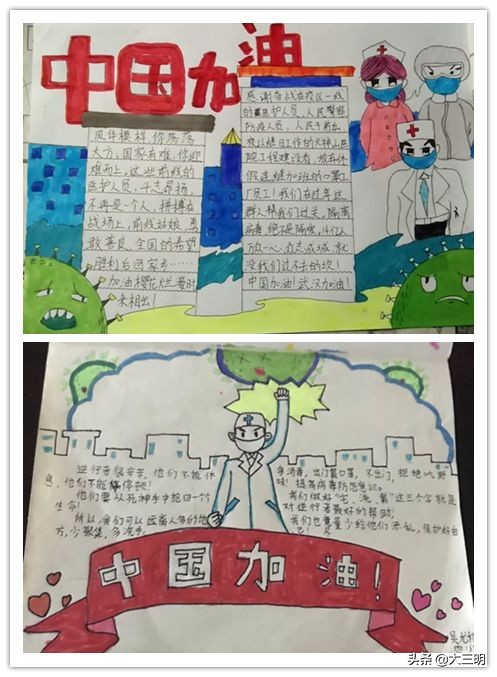 中国加油
风华模样,你落落
大方,国家有难,你迎
难而上,这些前线的
医护人员,斗志昂扬
不再是一个人,拼搏在
战场上,前线姑娘,勇
敢善良,全国的希望
胜利后回家乡……
加油樱花烂漫时
来相出!
感谢奋战在疫区一线
的医护人员,人民警察
防疫人员,人民子弟兵
院工程建设者,放弃休
假连续加班的口罩工
厂员工!我们在过年这
群人帮我们过关,隔离
病毒绝不是隔离,14亿人
万众一心,众志成城,就
没我们过不去的坎!
中国加油!武汉加油!
逆行者很辛苦,他们不能休
息,他们不能停歇!
他们要从死神手中抢回一个
生命!
所以,我们可以远离人多的地
方,少聚集,多洗手,
多消毒,出门戴口罩,不出门,拒绝吃野
味!提高病毒防范意识。
我们做好"宅、洗、戴"这三个字就是
对逆行者最好的帮助,
我们也尽量少给他们添乱,保护好自
己!
中国加油!
头条 @大三明